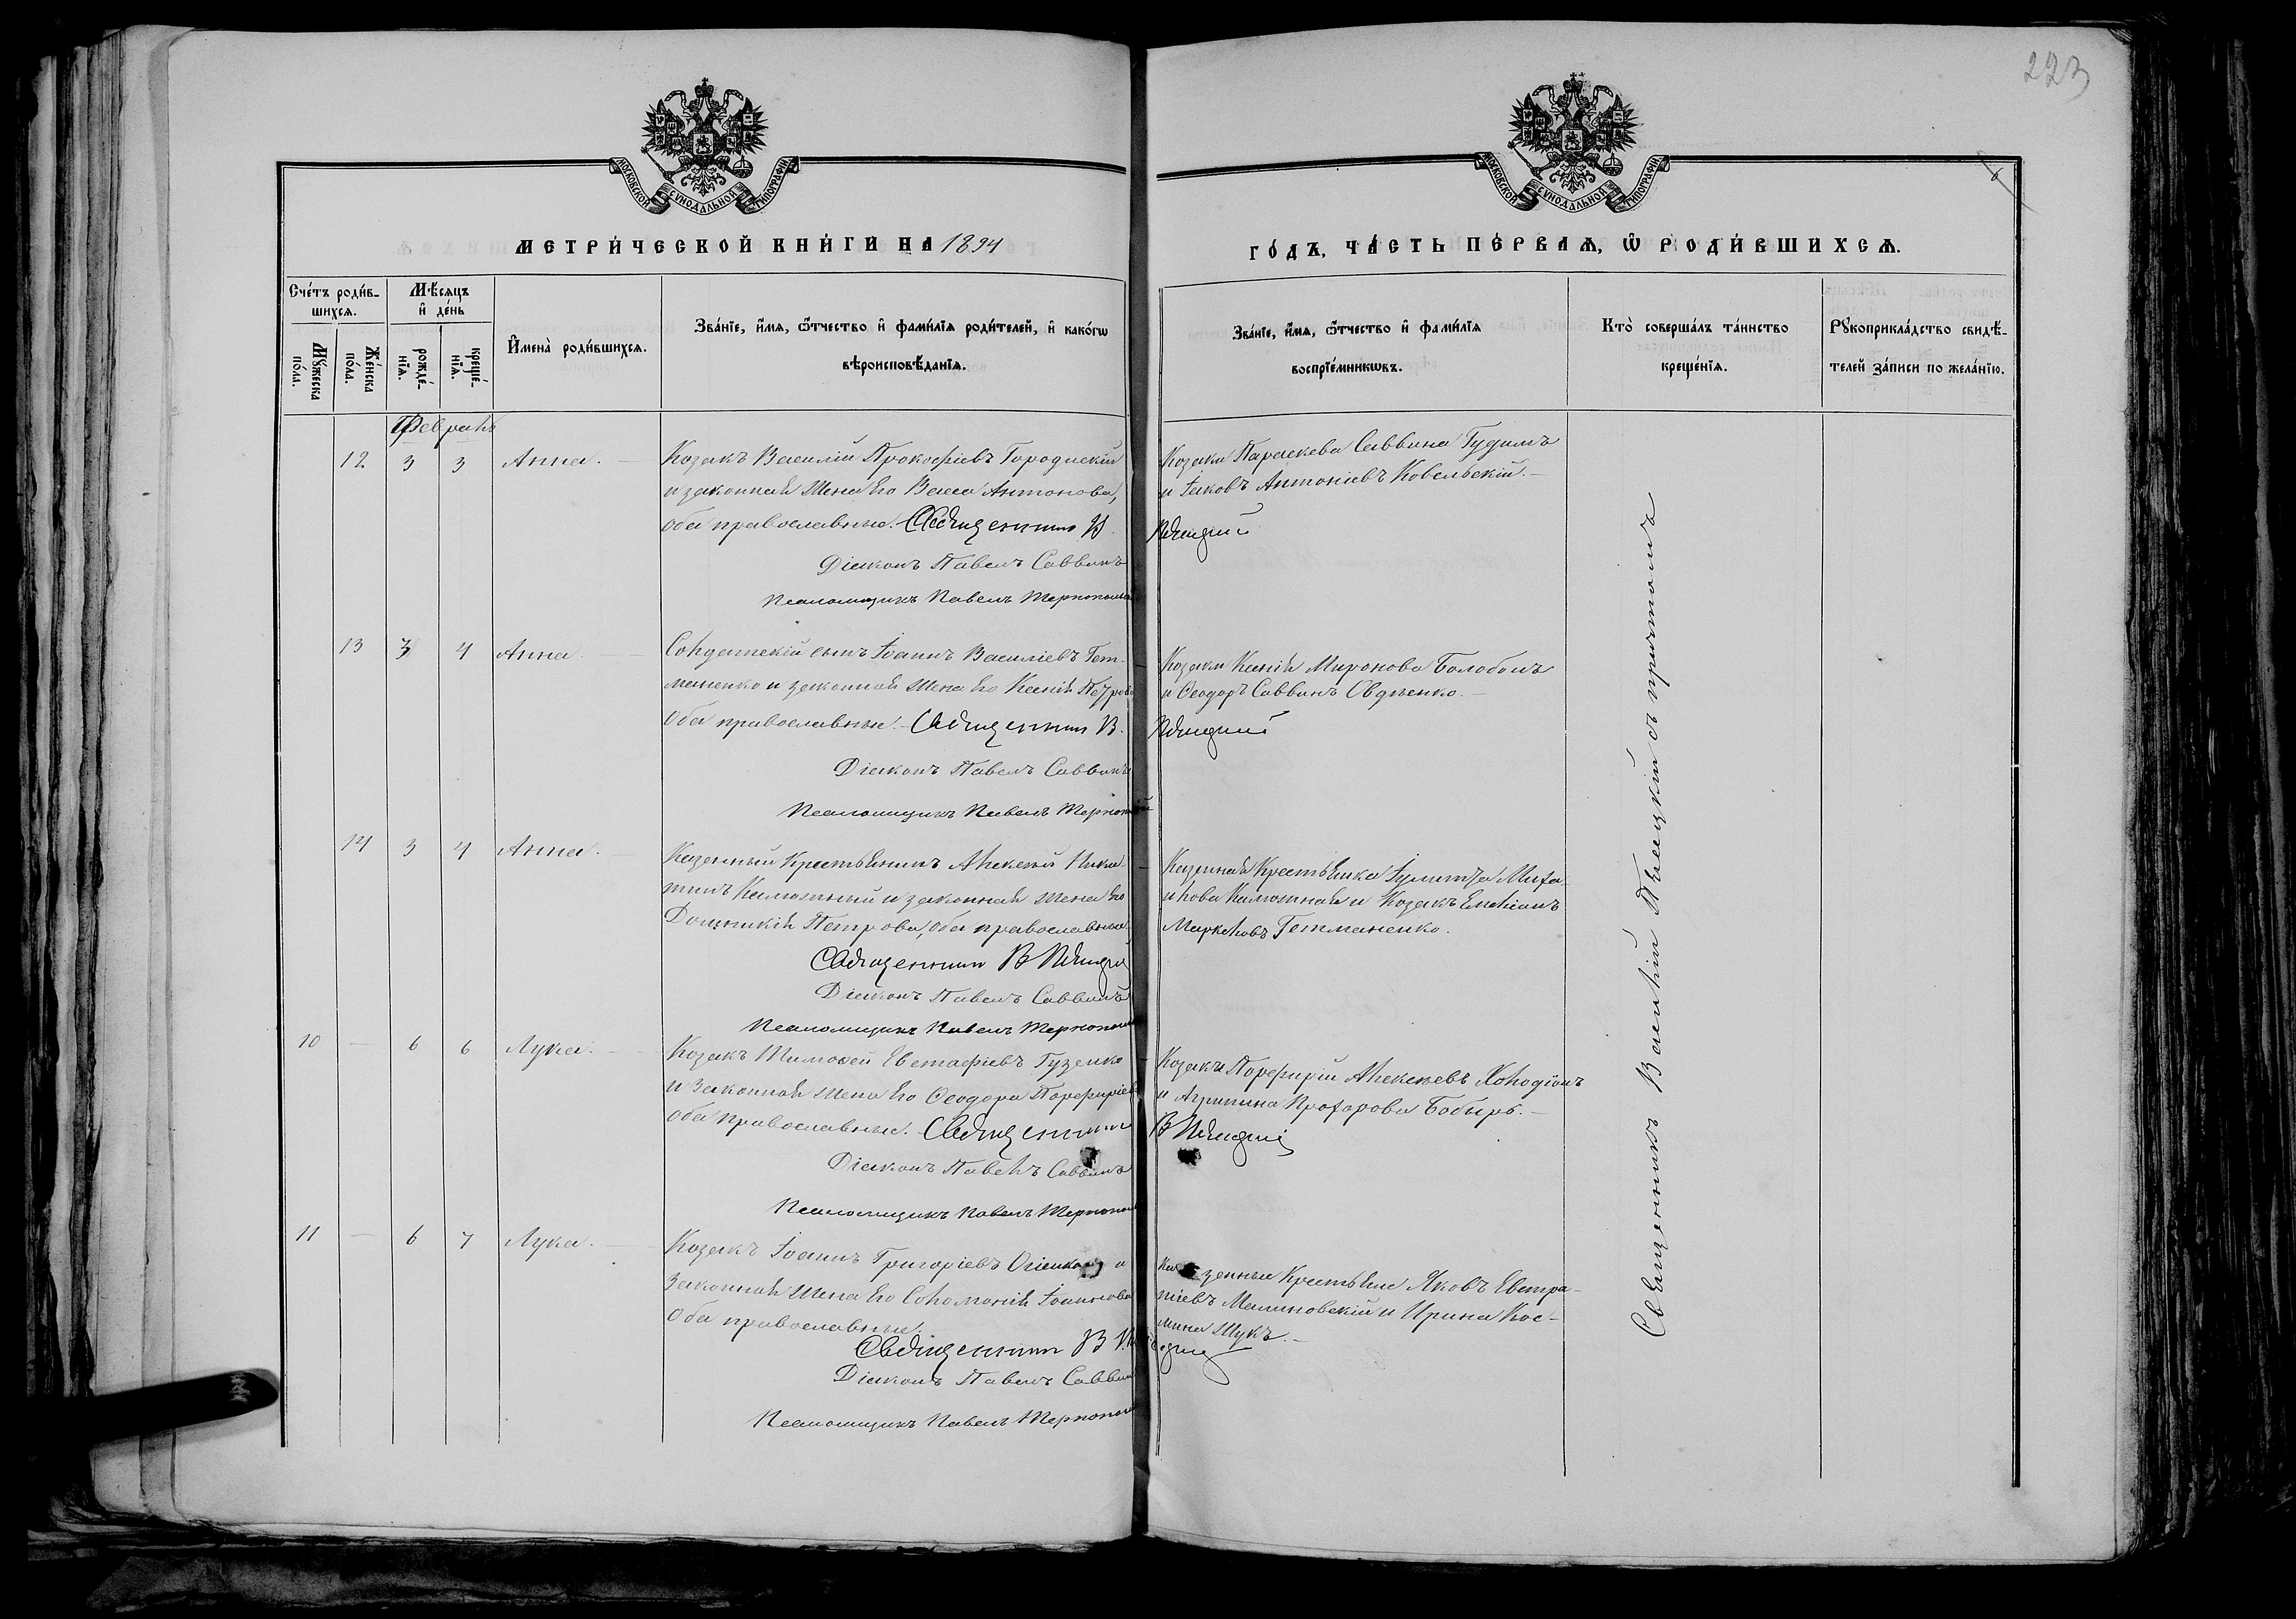 223
6
МОСКОВСКОЙ СѴНОДАЛЬНОЙ ТИПОГРАФІИ
МОСКОВСКОЙ СѴНОДАЛЬНОЙ ТИПОГРАФІИ
МЕТРИ́ЧЕСКОЙ КНИ́ГИ НА 1894
ГО́ДЪ, ЧА́СТЬ ПЕ́РВАѦ, Ѡ҆ РОДИ́ВШИХСѦ.
Сче́тъ роди́в-
шихсѧ.
Мꙋ́жеска по́ла.
Же́нска по́ла.
Мѣ́сѧцъ
и҆ де́нь
рожде́-
нїѧ.
креще́-
нїѧ.
И҆мена̀ роди́вшихсѧ.
Зва́нїе, и҆́мѧ, ѻ҆́тчество и҆ фами́лїѧ роди́телей, и҆ како́гѡ
вѣроисповѣ́данїѧ.
Зва́нїе, и҆́мѧ, ѻ҆́тчество и҆ фами́лїѧ
воспрїе́мникѡвъ.
Кто̀ соверша́лъ та́инство
креще́нїѧ.
Рꙋкоприкла́дство свидѣ́-
телей за́писи по жела́нїю.
Февраль
12 3 3 Анна.
Козакъ Василій Прокофіевъ Городискій
и законная жена его Васса Антонова,
оба православные. Священник В
Діаконъ Павелъ Саввинъ
Псаломщикъ Павелъ
Козаки Параскева Саввина Гудимъ
и Іаковъ Антоніевъ Ковельскій.
13 3 4 Анна.
Солдатскій сынъ Іоаннъ Василіевъ Гет-
маненко и законная жена его Ксенія Петрова
оба православные. Священник В.
Діаконъ Павелъ Саввинъ
Псаломщикъ Павелъ
Козаки Ксенія Миронова Балабонъ
и Ѳеодоръ Саввинъ Овдѣенко.
14 3 4 Анна.
Казенный крестьянинъ Алексѣй Ники-
тинъ Калюжный и законная жена его
Домникія Петрова, оба православные.
Священник В
Діаконъ Павелъ Саввинъ
Псаломщикъ Павелъ
Казенная крестьянка Іулитта Миха-
илова Калюжная и Козакъ Емеліанъ
Маркеловъ Гетманенко.
10 — 6 6 Лука.
Козакъ Тимоѳей Евстафіевъ Гузенко
и законная жена его Ѳеодора Порфиріева
оба православные. Священник
Діаконъ Павелъ Саввинъ
Псаломщикъ Павелъ
Козаки Порфирій Алексѣевъ
и Агрипина Прохорова Бобырь.
В
11 — 6 7 Лука.
Козакъ Іоаннъ Григоріевъ Огіенко и
законная жена его Соломонія Іоаннова
оба православные.
Священник В
Діаконъ Павелъ Саввинъ
Псаломщикъ Павелъ
Казенные крестьяне Яковъ Евтро-
піевъ Малиновскій и Ирина Кос-
мина Шукъ.
Священникъ Василій съ причтомъ